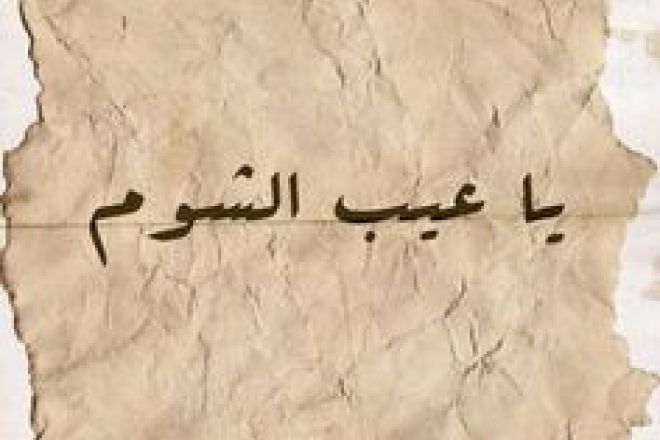 يا عيب الشوم